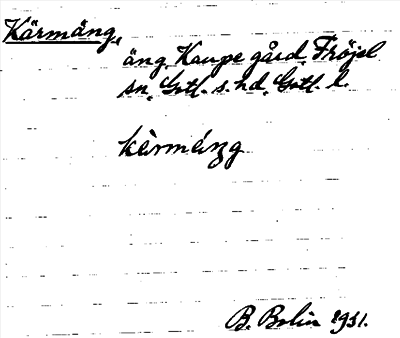 Kärmäng,
äng, Kaupe gård, Fröjel
sn, Gotl. s. hd, Gotl. l.
B. Bolin 1931.